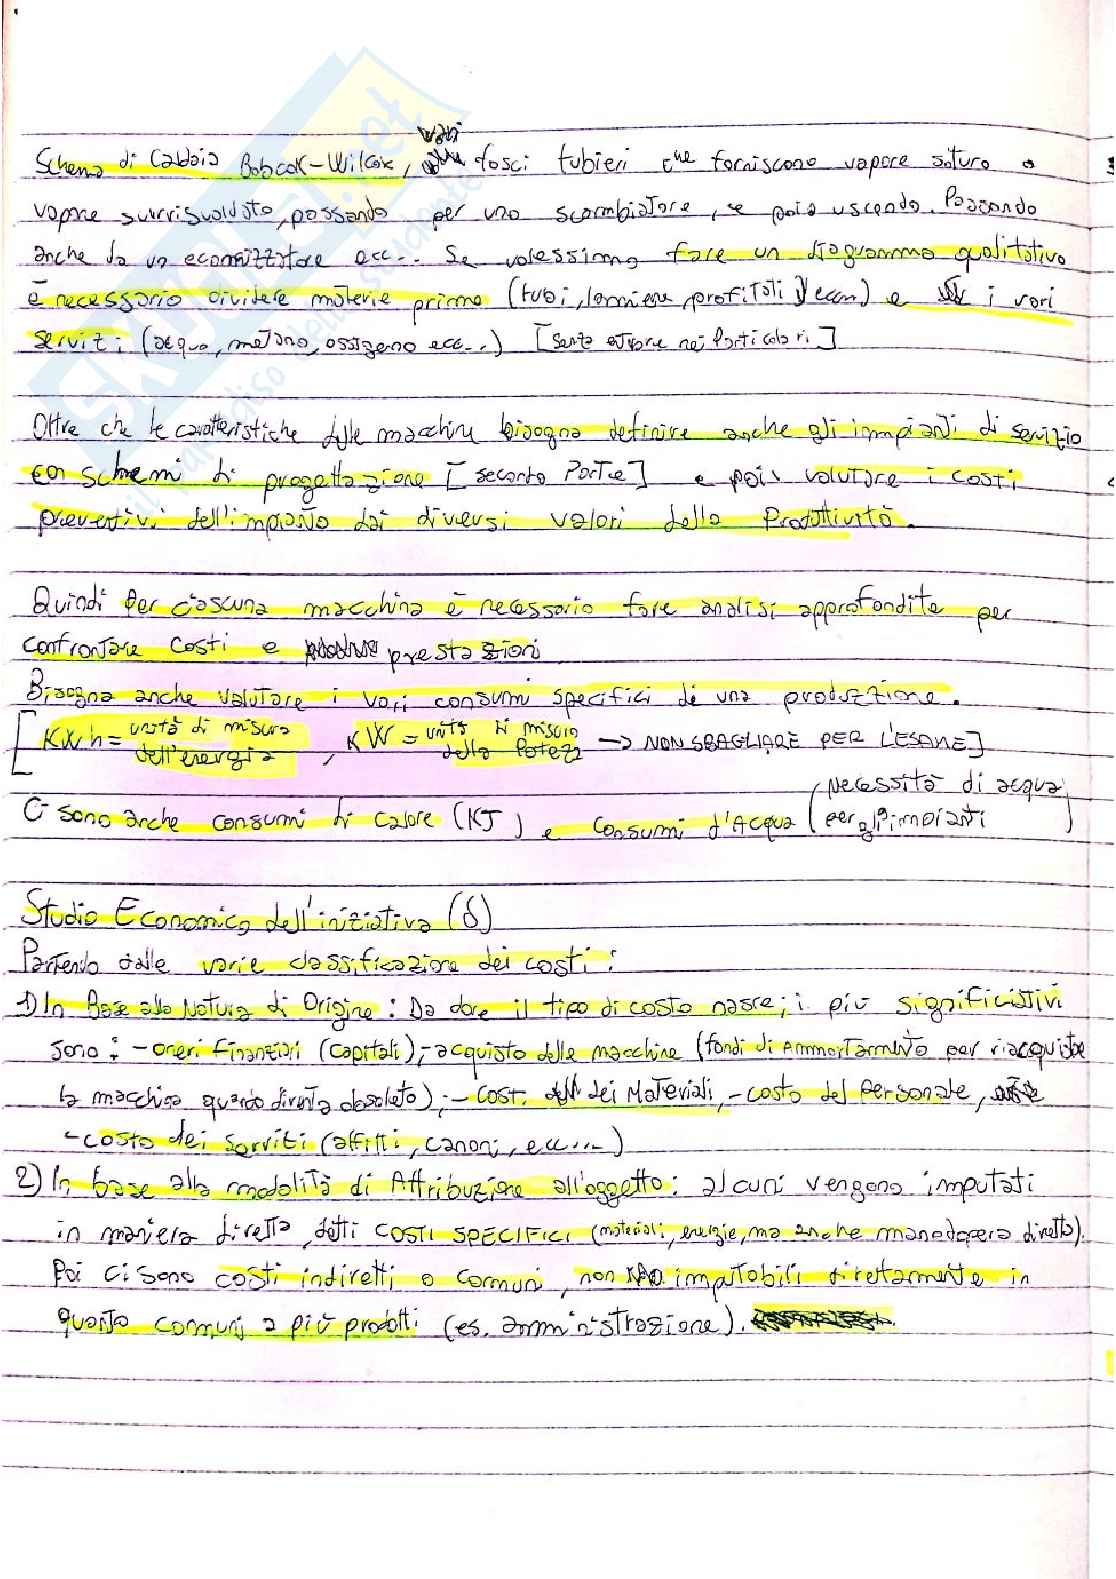 vari
Schema di Caldaia Babcok-Wilcox, fasci tubieri che forniscono vapore saturo o
vapore surriscaldato, passando per uno scambiatore, e poi uscendo. Passando
anche da un economizzatore ecc... Se volessimo fare un diagramma qualitativo
è necessario dividere materie prime (tubi, lamiere, profilati, ) e i vari
servizi (acqua, metano, ossigeno ecc...) [senza entrare nei Particolari]
Oltre che le caratteristiche delle macchine bisogna definire anche gli impianti di servizio
con schemi di progettazione [seconda Parte] e poi valutare i costi
preventivi dell'impianto dai diversi valori della Produttività.
Quindi Per ciascuna macchina è necessario fare analisi approfondite per
confrontare costi e prestazioni
Bisogna anche valutare i vari consumi specifici di una produzione.
[KWh = unità di misura dell'energia, KW = unità di misura della Potenza → NON SBAGLIARE PER L'ESAME]
Ci sono anche consumi di calore (KJ) e consumi d'Acqua (necessità di acqua per gli impianti)
Studio Economico dell'iniziativa (δ)
Partendo dalle varie classificazione dei costi:
1) In Base alla Natura di Origine: Da dove il tipo di costo nasce; i più significativi
sono: - oneri finanziari (capitali), - acquisto delle macchine (fondi di Ammortamento per riacquistare
la macchina quando diventa obsoleta); - cost. dei Materiali, - costo del Personale,
- costo dei Servizi (affitti, canoni, ecc...)
2) In base alla modalità di Attribuzione all'oggetto: alcuni vengono imputati
in maniera diretta, detti COSTI SPECIFICI (materiali, energie, ma anche manodopera diretta).
Poi ci sono costi indiretti o comuni, non imputabili direttamente in
quanto comuni a più prodotti (es. amministrazione).
SKUOLA.net
il paradiso dello studente